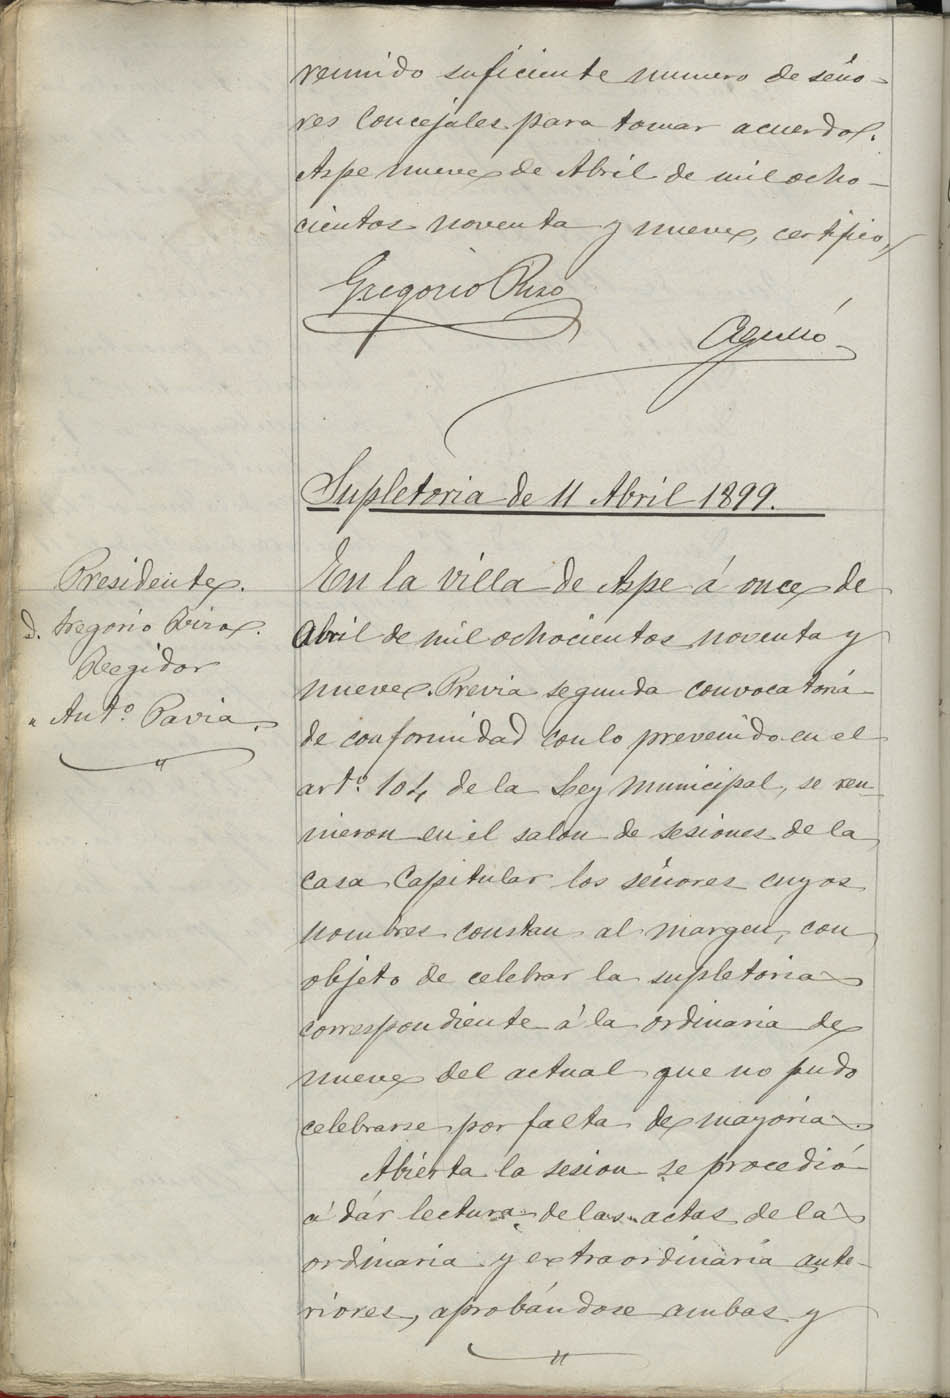 reunido suficiente numero de seño-
res Concejales para tomar acuerdo.
Aspe nueve de Abril de mil ocho-
cientos noventa y nueve, certifico,
Gregorio Rizo
Supletoria de 11 Abril 1899.
Presidente.
D. Gregorio Rizo.
Regidor
" Ant.º Pavia.
En la villa de Aspe á once de
Abril de mil ochocientos noventa y
nueve. Previa segunda convocatoria
de conformidad con lo prevenido en el
art.º 104 de la Ley Municipal, se reu-
nieron en el salon de sesiones de la
Casa Capitular los señores cuyos
nombres constan al margen, con
objeto de celebrar la supletoria
correspondiente á la ordinaria de
nueve del actual que no pudo
celebrarse por falta de mayoria.
Abierta la sesion se procedió
á dár lectura de las actas de la
ordinaria y extraordinaria ante-
riores, aprobándose ambas y